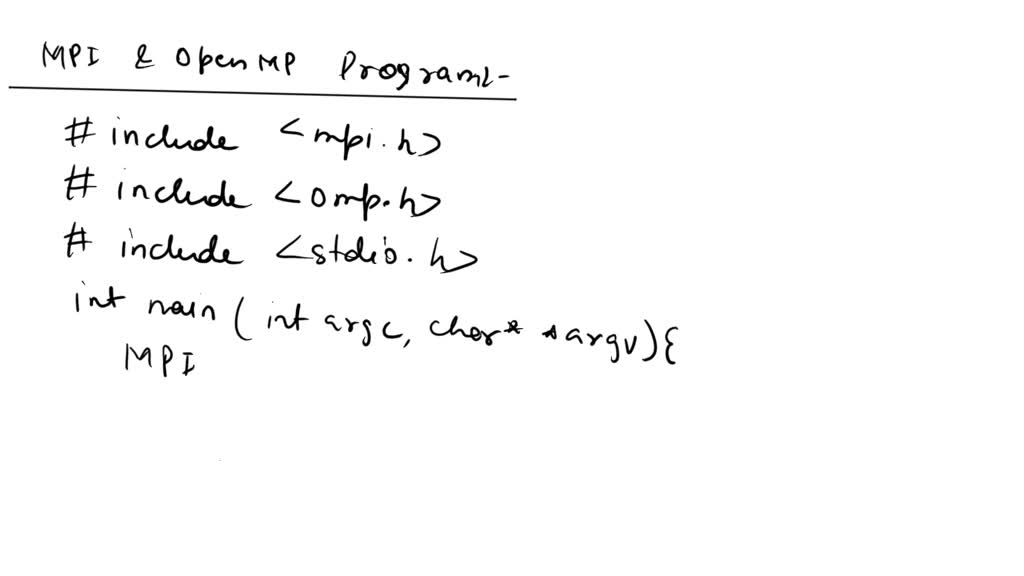 MPI & OpenMP Program:-
# include <mpi.h>
# include <omp.h>
# include <stdio.h>
int main (int argc, char* *argv){
MPI